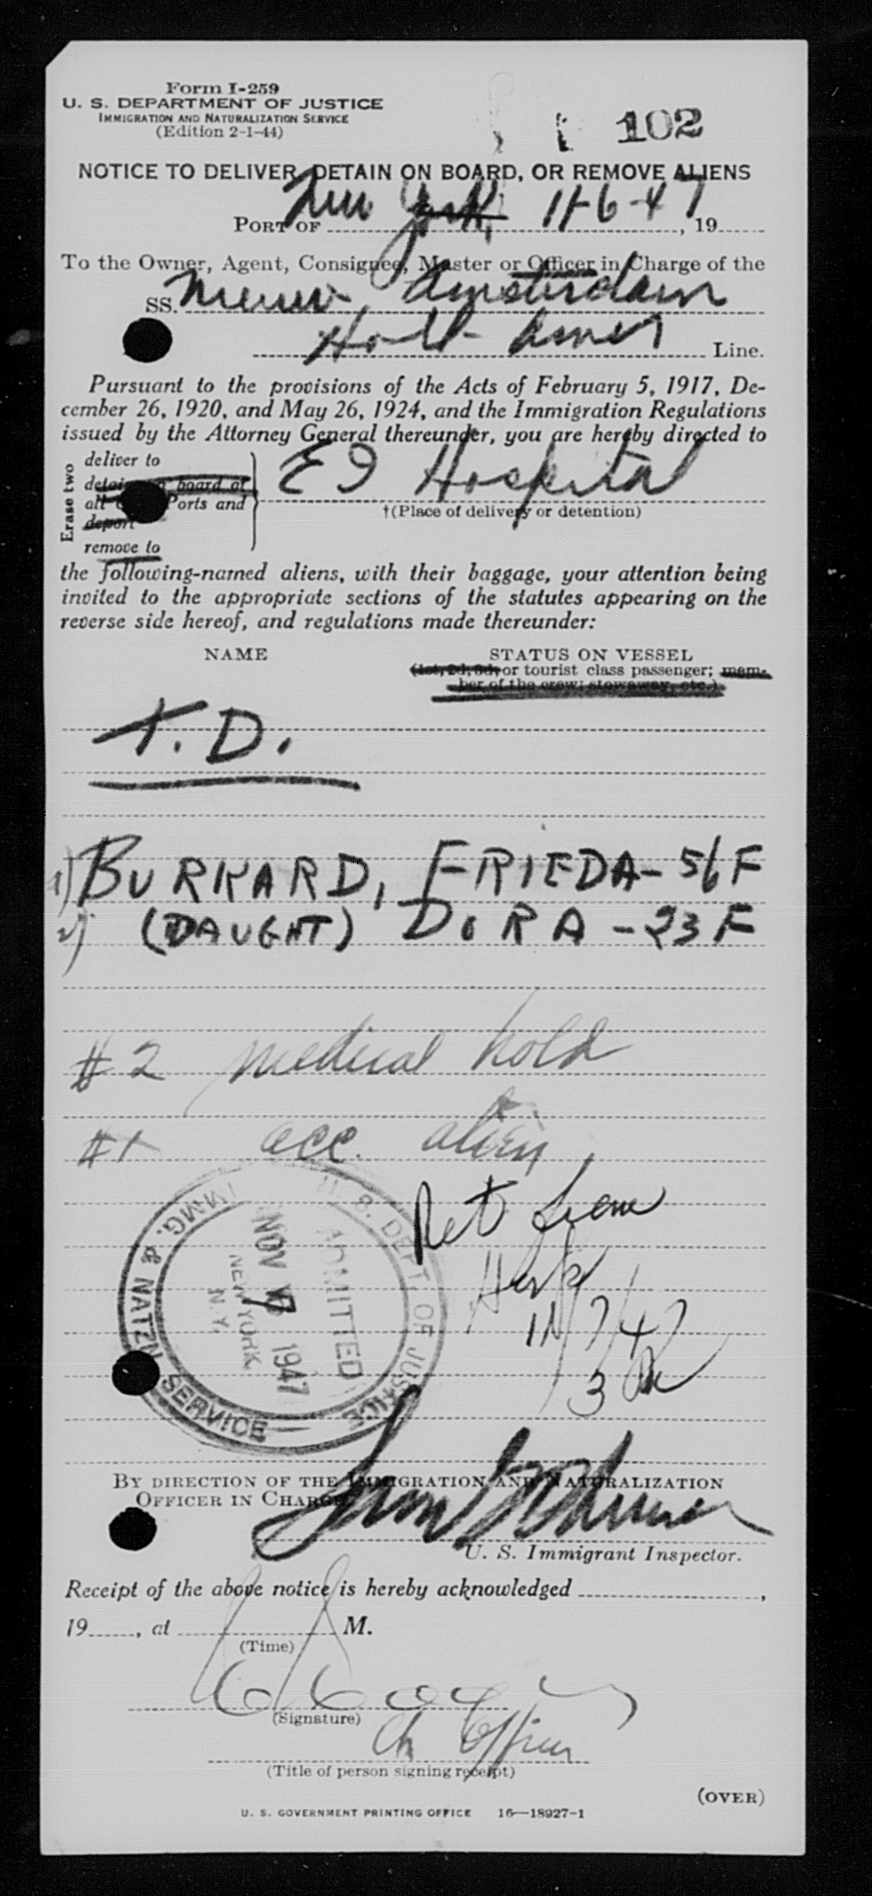 Form I-259
U. S. DEPARTMENT OF JUSTICE
IMMIGRATION AND NATURALIZATION SERVICE
(Edition 2-1-44)
102
NOTICE TO DELIVER, DETAIN ON BOARD, OR REMOVE ALIENS
PORT OF New York, 11-6-47, 19
To the Owner, Agent, Consignee, Master or Officer in Charge of the
SS. Nieuw Amsterdam
Holl- Amer Line.
Pursuant to the provisions of the Acts of February 5, 1917, De-
cember 26, 1920, and May 26, 1924, and the Immigration Regulations
issued by the Attorney General thereunder, you are hereby directed to
Erase two
deliver to
detain on board at
all Ports and
deport
remove to
EI Hospital
†(Place of delivery or detention)
the following-named aliens, with their baggage, your attention being
invited to the appropriate sections of the statutes appearing on the
reverse side hereof, and regulations made thereunder:
NAME STATUS ON VESSEL
(1st, 2d, 3d, or tourist class passenger; mem-
ber of the crew; stowaway, etc.)
T. D.
1) BURKARD, FRIEDA - 56 F
2) (DAUGHT) DORA - 23 F
#2 medical hold
#1 acc. alien
Ret from
Hosp
11/7/47
3
U. S. DEPT. OF JUSTICE
IMMG. & NATZN SERVICE
ADMITTED
NOV 7 1947
NEW YORK,
N.Y.
BY DIRECTION OF THE IMMIGRATION AND NATURALIZATION
OFFICER IN CHARGE
U. S. Immigrant Inspector.
Receipt of the above notice is hereby acknowledged ,
19 , at M.
(Time)
(Signature)
Ch Officer
(Title of person signing receipt)
(OVER)
U. S. GOVERNMENT PRINTING OFFICE 16—18927-1